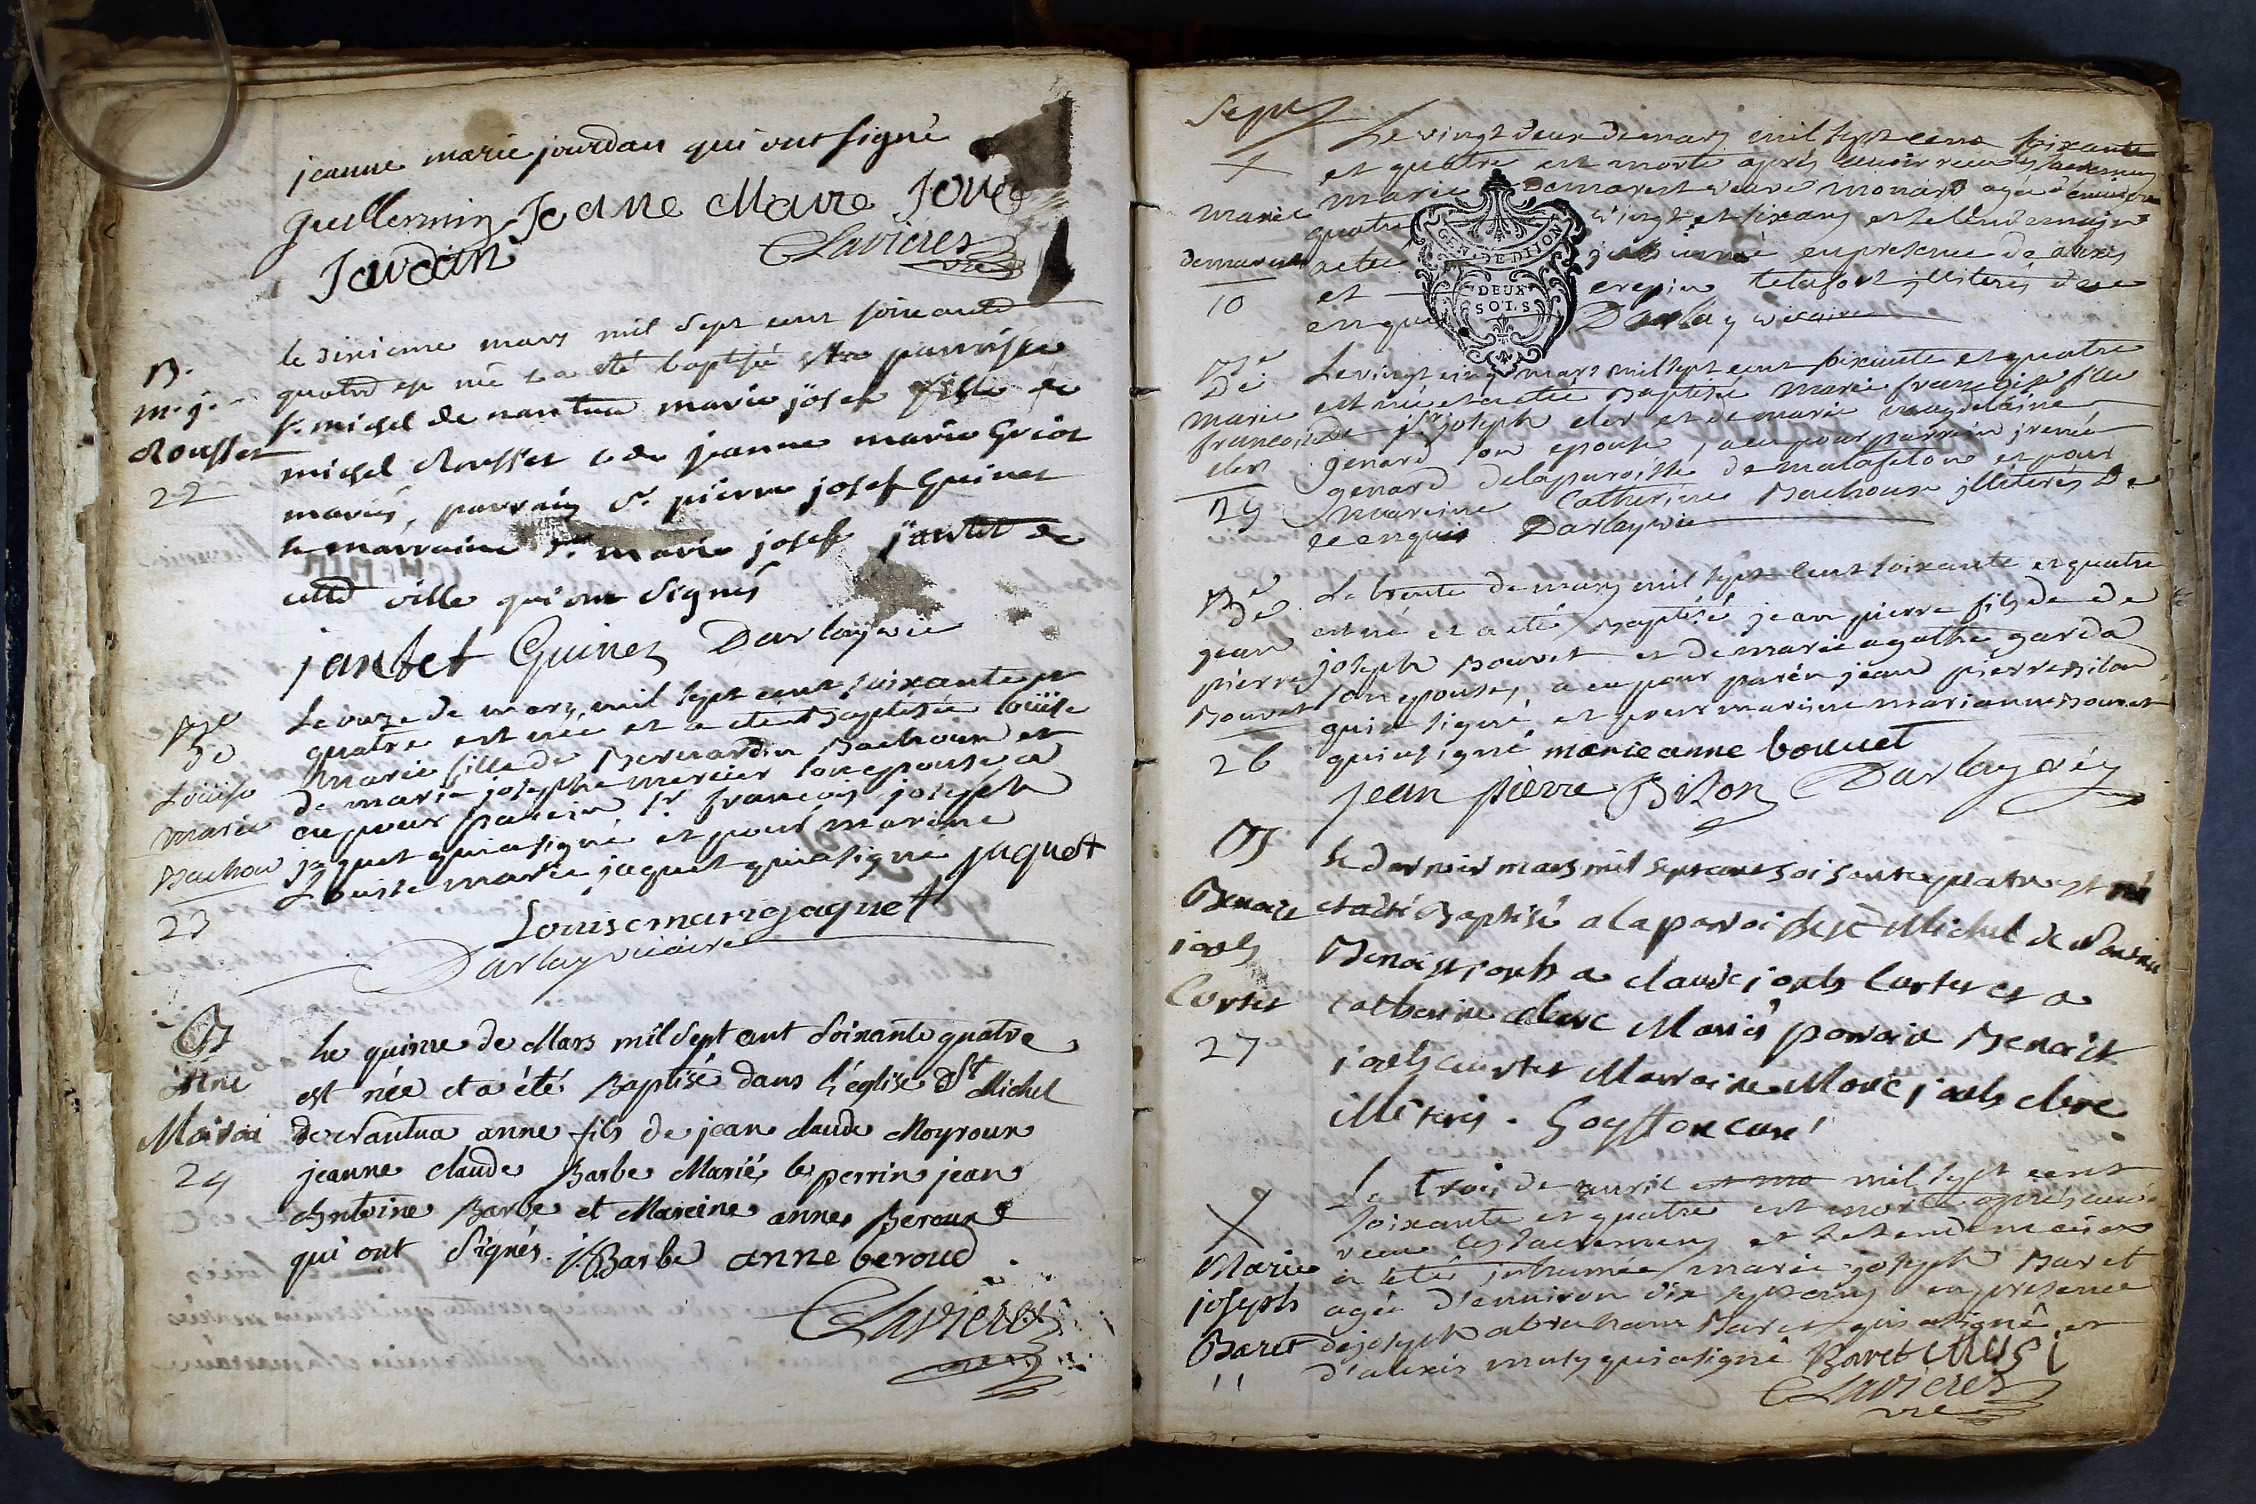 jeanne marie jourdan qui ont signé
guillermin Jeane Marie Jour
Jourdan
Clavieres
vic
le sixieme mars mil sept cent soixante
B.
quatre est née & a été baptisée parroisse
m. j.
St michel de nantua marie josef fille de
Rousset
michel Rousset & de jeanne marie Griot
22
mariés, parrain Sr. pierre josef Guinet
& marraine marie josef jantet de
cette ville qui ont signés
jantet Guinet Darlay vic
Be
Le onze de mars mil sept cent soixante et
De
quatre est née et a été Baptisée Loüise
Loüise
marie fille de Bernardin Bachoux et
marie
de marie josephe mercier son epouse a
Bachou
eu pour parein Sr francois joseph
jaquet qui a signé et pour marine
23
Louise marie jaquet qui a signé jaquet
Louise marie jaquet
Darlay vicaire
B
Le quinze de Mars mil sept cent soixante quatre
Anne
est née et a été Baptisé dans l'église St Michel
Moirou
de Nantua anne fils de jean claude Moyroux
24
jeanne claude Barbe Mariés le perrin jean
Antoine Barbe et Mareine anne Beroux
qui ont signés. j. Barbe anne beroud
Clavieres
vic
Sept
Le vingt deux de mars mil sept cens soixante
X
et quatre est morte après avoir recu les sacremens
marie
marie Demarest veuve monard agée d'environ
demarest
quatre vingt et six ans et le lendemain
10
a eté inhumée en presence de alexis
et crepin telafort illiterés de ce
enquis Darlay vicaire
Be
Le vingt cinq mars mil sept cent soixante et quatre
De
est née et a eté Baptisée marie francoise fille
marie
francoise
de Sr joseph cler et de marie magdelaine
cler
genard son epouse, a eu pour parrein jrenée
genard de la paroisse de matafelon et pour
25
mareine Catherine Bachoux illiterés De
ce enquis Darlay vic
Be
Le trente de mars mil sept cent soixante et quatre
de
est né et a eté Baptisé jean pierre fils de de
jean
joseph Bouvet et de marie agathe garda
pierre
son epouse, a eu pour parein jean pierre Bilon
Bouvet
qui a signé et pour marine marianne Bouvet
26
qui a signé marie anne bouuet
jean pierre Bilon Darlay vic
B
le dernier mars mil sept cent soisante quatre est né
Benoit
et a été Baptisé a la paroisse St Michel de Nantua
joseph
Benoist joseph a claude joseph Curtet et a
Curtet
catherine clerc Mariés parrain Benoit
27
joseph curtet Marraine Marie joseph clerc
illiterés. Goyffon curé
Le trois de avril mil sept cent
X
soixante et quatre est morte après avoir
Marie
recu les sacremens et le lendemain
joseph
a eté inhumée marie joseph Baret
Baret
agée d'environ dix sept ans en presence
11
de joseph abraham Baret qui a signé et
d'alexis musy qui a signé Baret MUSI
Clavieres
vic
GEN. DE DIJON
DEUX
SOLS